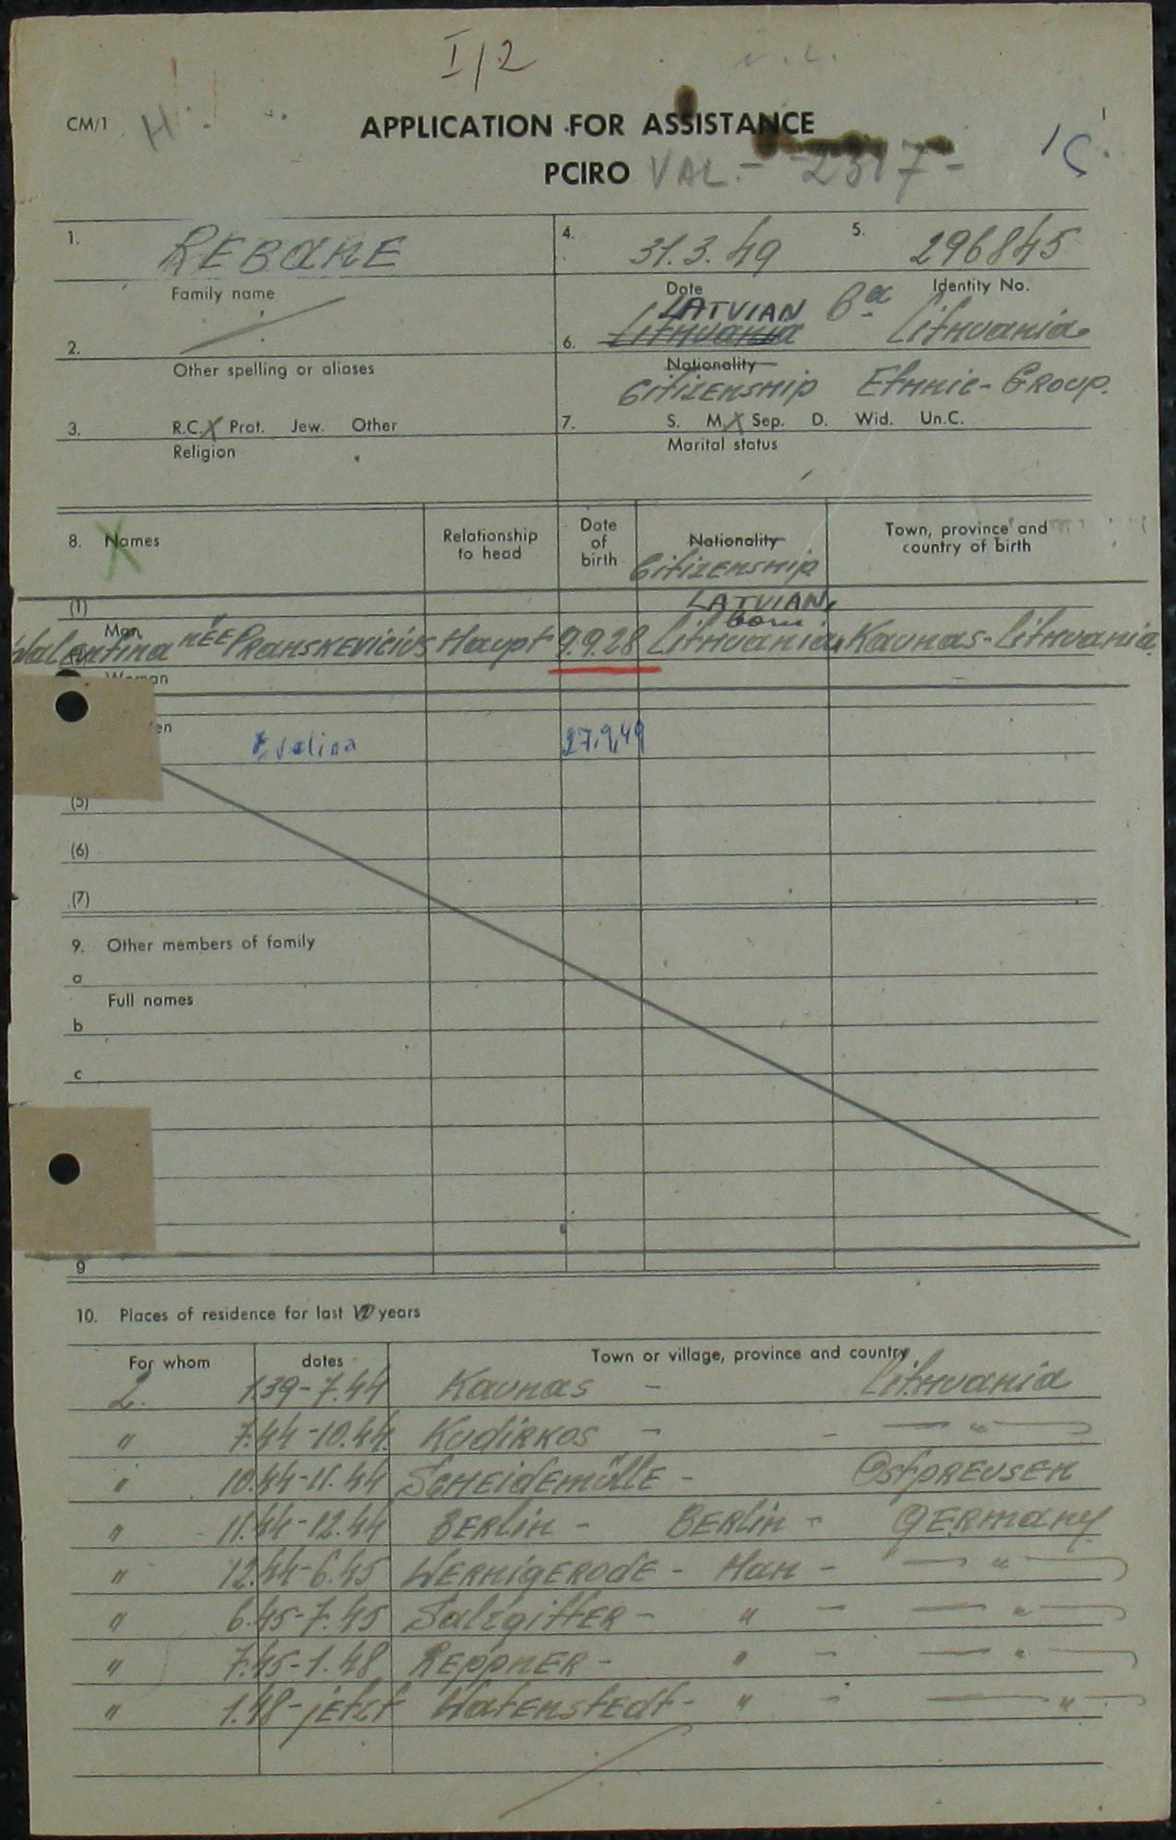 I/2
CM/1 H
APPLICATION FOR ASSISTANCE
PCIRO VAL.- -2317-
1. REBANE
Family name
4. 31.3.49
Date
5. 296845
Identity No.
2.
Other spelling or aliases
LATVIAN
6. Lithuania Lithuania
Nationality
Citizenship Ethnic-Group.
3. R.C. X Prot. Jew. Other
Religion
7. S. M. X Sep. D. Wid. Un.C.
Marital status
8. Names
Relationship to head
Date of birth
Nationality
Citizenship
Town, province and country of birth
(1)
Man
LATVIAN
born
Walentina NÉE Pranskevicius Haupt 9.9.28 Lithuania Kaunas-Lithuania.
Woman
en
Evelina 27.9.49
(5)
(6)
(7)
9. Other members of family
a
Full names
b
c
9
10. Places of residence for last 12 years
For whom dates Town or village, province and country
2. 1.39-7.44 Kaunas - Lithuania
" 7.44-10.44. Kudirkos - - — " —
" 10.44-11.44 Scheidemülle - Ostpreusen
" 11.44-12.44 Berlin - Berlin - Germany
" 12.44-6.45 Wernigerode - Han - — " —
" 6.45-7.45 Salzgitter - " - — " —
" 7.45-1.48 Reppner - " - — " —
" 1.48-jetzt Watenstedt - " - — " —